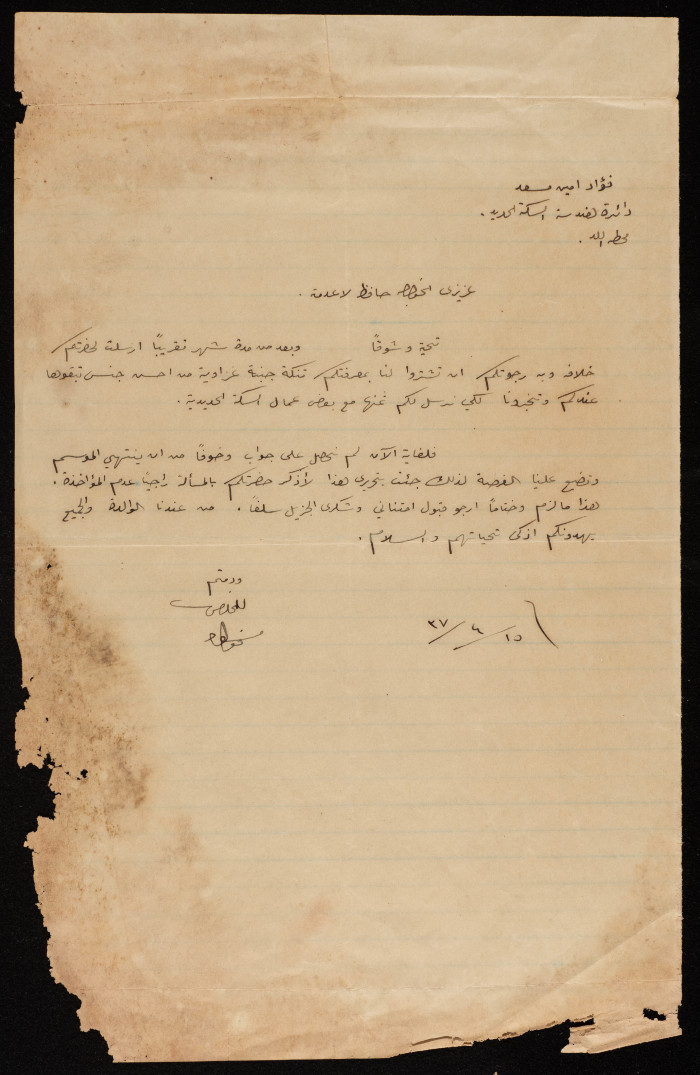 فؤاد امين سعد
دائرة هندسة السكة الحديد .
محطة اللد .
عزيزي الخواجا حافظ لا عدمته .
تحية وشوقاً وبعد من مدة شهر تقريباً ارسلت لحضرتكم
خلافه وبه رجوتكم ان تشتروا لنا بمعرفتكم تنكة جبنة غزاوية من احسن جنس تبقوها
عندكم وتخبرونا لكي نرسل لكم ثمنها مع بعض عمال السكة الحديدية .
فلغاية الآن لم نحصل على جواب وخوفاً من ان ينتهي الموسم
وتضيع علينا الفرصة لذلك جئت بتحريري هذا لأذكر حضرتكم بالمسألة راجياً عدم المؤاخذة .
هذا ما لزم وختاماً ارجو قبول امتناني وشكري الجزيل سلفاً . من عندنا الوالدة والجميع
يهدونكم ازكى تحياتهم والسلام .
ودمتم
للمخلص
١٥/٤/٣٧